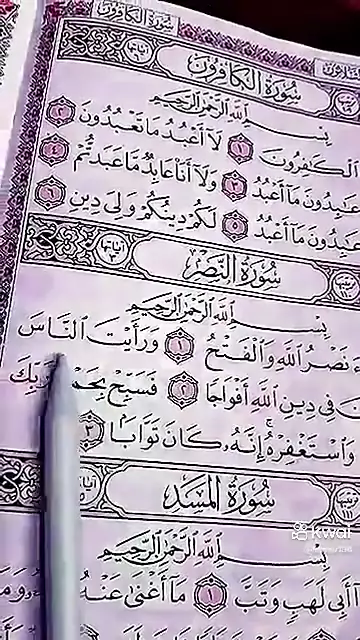 سُورَةُ الكَافِرُونَ
بِسْمِ اللَّهِ الرَّحْمَٰنِ الرَّحِيمِ
الْكَافِرُونَ ١ لَا أَعْبُدُ مَا تَعْبُدُونَ ٢
عَابِدُونَ مَا أَعْبُدُ ٣ وَلَا أَنَا عَابِدٌ مَا عَبَدْتُمْ ٤
عَابِدُونَ مَا أَعْبُدُ ٥ لَكُمْ دِينُكُمْ وَلِيَ دِينِ ٦
سُورَةُ النَّصْرِ
بِسْمِ اللَّهِ الرَّحْمَٰنِ الرَّحِيمِ
نَصْرُ اللَّهِ وَالْفَتْحُ ١ وَرَأَيْتَ النَّاسَ
فِي دِينِ اللَّهِ أَفْوَاجًا ٢ فَسَبِّحْ رَبِّكَ
وَاسْتَغْفِرْهُ إِنَّهُ كَانَ تَوَّابًا ٣
سُورَةُ المَسَدِ
بِسْمِ اللَّهِ الرَّحْمَٰنِ الرَّحِيمِ
أَبِي لَهَبٍ وَتَبَّ ١ مَا أَغْنَىٰ عَنْهُ
kwai